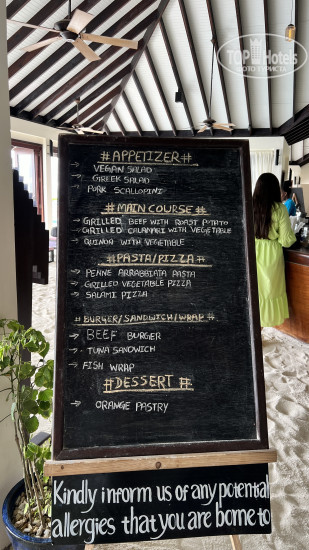 TOPHotels
ФОТО ТУРИСТОВ
#APPETIZER#
→ VEGAN SALAD
→ GREEK SALAD
→ PORK SCALLOPINI
#MAIN COURSE#
→ GRILLED BEEF WITH ROAST POTATO
→ GRILLED CALAMARI WITH VEGETABLE
→ QUINOA WITH VEGETABLE
#PASTA/PIZZA#
→ PENNE ARRABBIATA PASTA
→ GRILLED VEGETABLE PIZZA
→ SALAMI PIZZA
#BURGER/SANDWICH/WRAP#
→ BEEF BURGER
→ TUNA SANDWICH
→ FISH WRAP
#DESSERT#
→ ORANGE PASTRY
Kindly inform us of any potential
allergies that you are borne to